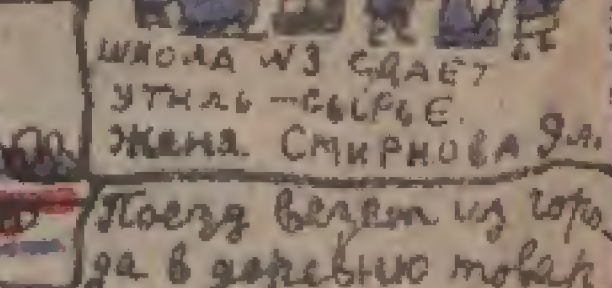 ШКОЛА №3 СДАЕТ
УТИЛЬ-СЫРЬЕ.
Женя СМИРНОВА 9 л.
Поезд везет из горо
да в деревню товар